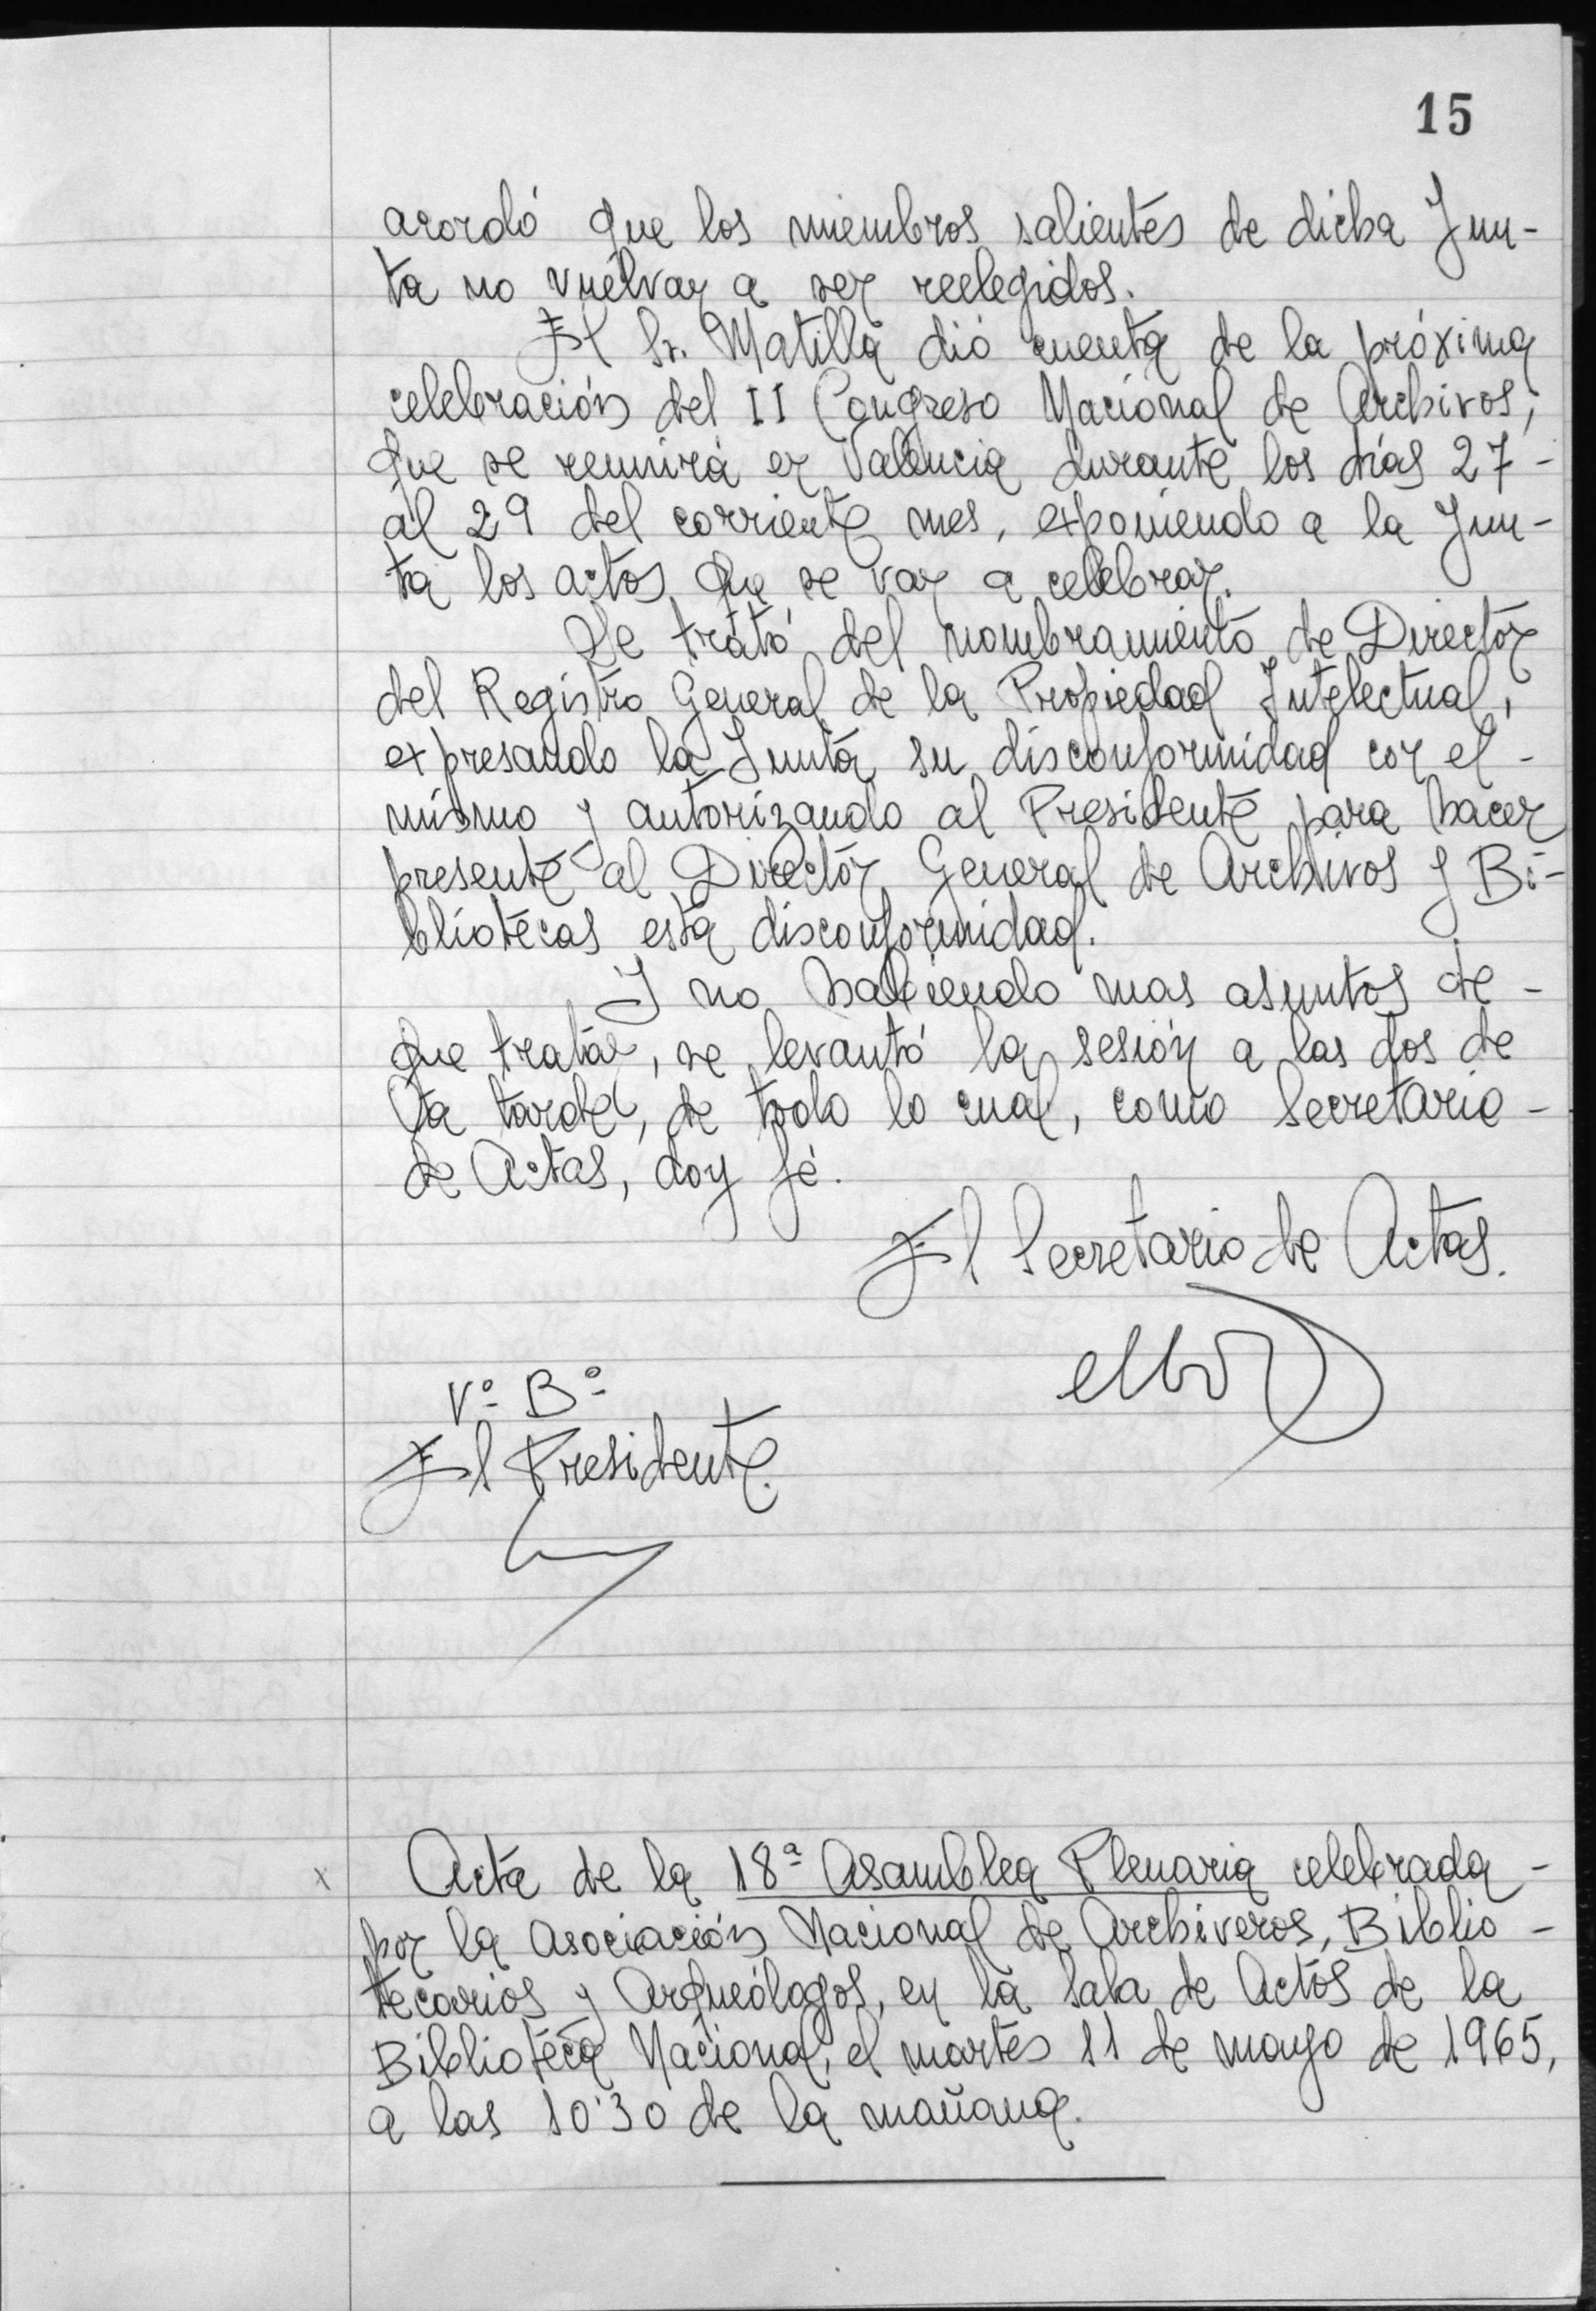 15
acordó que los miembros salientes de dicha Jun-
ta no vuelvan a ser reelegidos.
El Sr. Matilla dió cuenta de la próxima
celebración del II Congreso Nacional de Archivos,
que se reunirá en Valencia durante los días 27-
al 29 del corriente mes, exponiendo a la Jun-
ta los actos que se van a celebrar.
Se trató del nombramiento de Director
del Registro General de la Propiedad Intelectual,
expresando la Junta su disconformidad con el-
mismo y autorizando al Presidente para hacer
presente al Director General de Archivos y Bi-
bliotecas esta disconformidad.
Y no habiendo mas asuntos de-
que tratar, se levantó la sesión a las dos de
la tarde, de todo lo cual, como Secretario-
de Actas, doy fé.
El Secretario de Actas.
Vº Bº
El Presidente.
x Acta de la 18ª Asamblea Plenaria celebrada-
por la Asociación Nacional de Archiveros, Biblio-
tecarios y Arqueólogos, en la Sala de Actos de la
Biblioteca Nacional, el martes 11 de mayo de 1965,
a las 10'30 de la mañana.